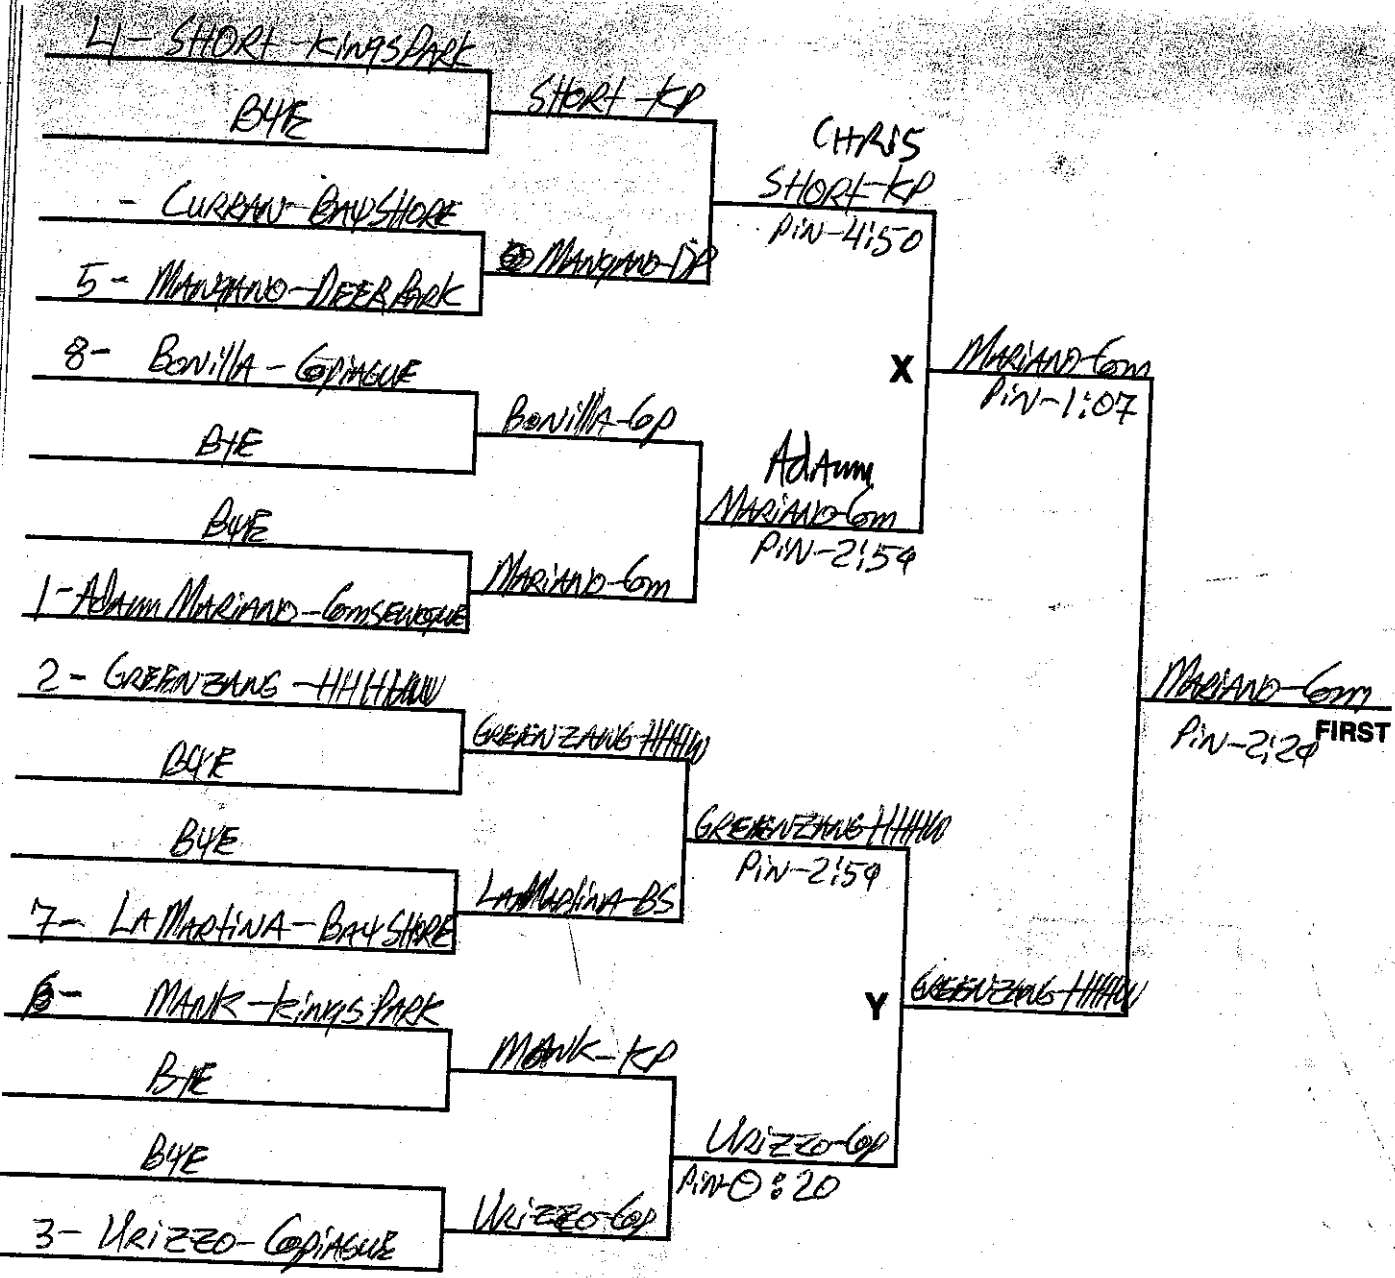 4- SHORT - KINGS PARK
BYE
- CURRAN - BAYSHORE
5 - MANGANO - DEER PARK
8 - BONILLA - COPIAGUE
BYE
BYE
1 - ADAM MARIANO - COMSEWOGUE
2 - GREENZANG - HHHHW
BYE
BYE
7 - LAMARTINA - BAYSHORE
6 - MANK - KINGS PARK
BYE
BYE
3 - URIZZO - COPIAGUE
SHORT - KP
MANGANO - DP
BONILLA - COP
MARIANO - COM
GREENZANG - HHHW
LAMARTINA - BS
MANK - KP
URIZZO - COP
CHRIS
SHORT - KP
PIN - 4:50
ADAM
MARIANO - COM
PIN - 2:54
GREENZANG - HHHW
PIN - 2:54
URIZZO - COP
PIN 0:20
X
MARIANO - COM
PIN - 1:07
Y
GREENZANG - HHHW
MARIANO - COM
FIRST
PIN - 2:24